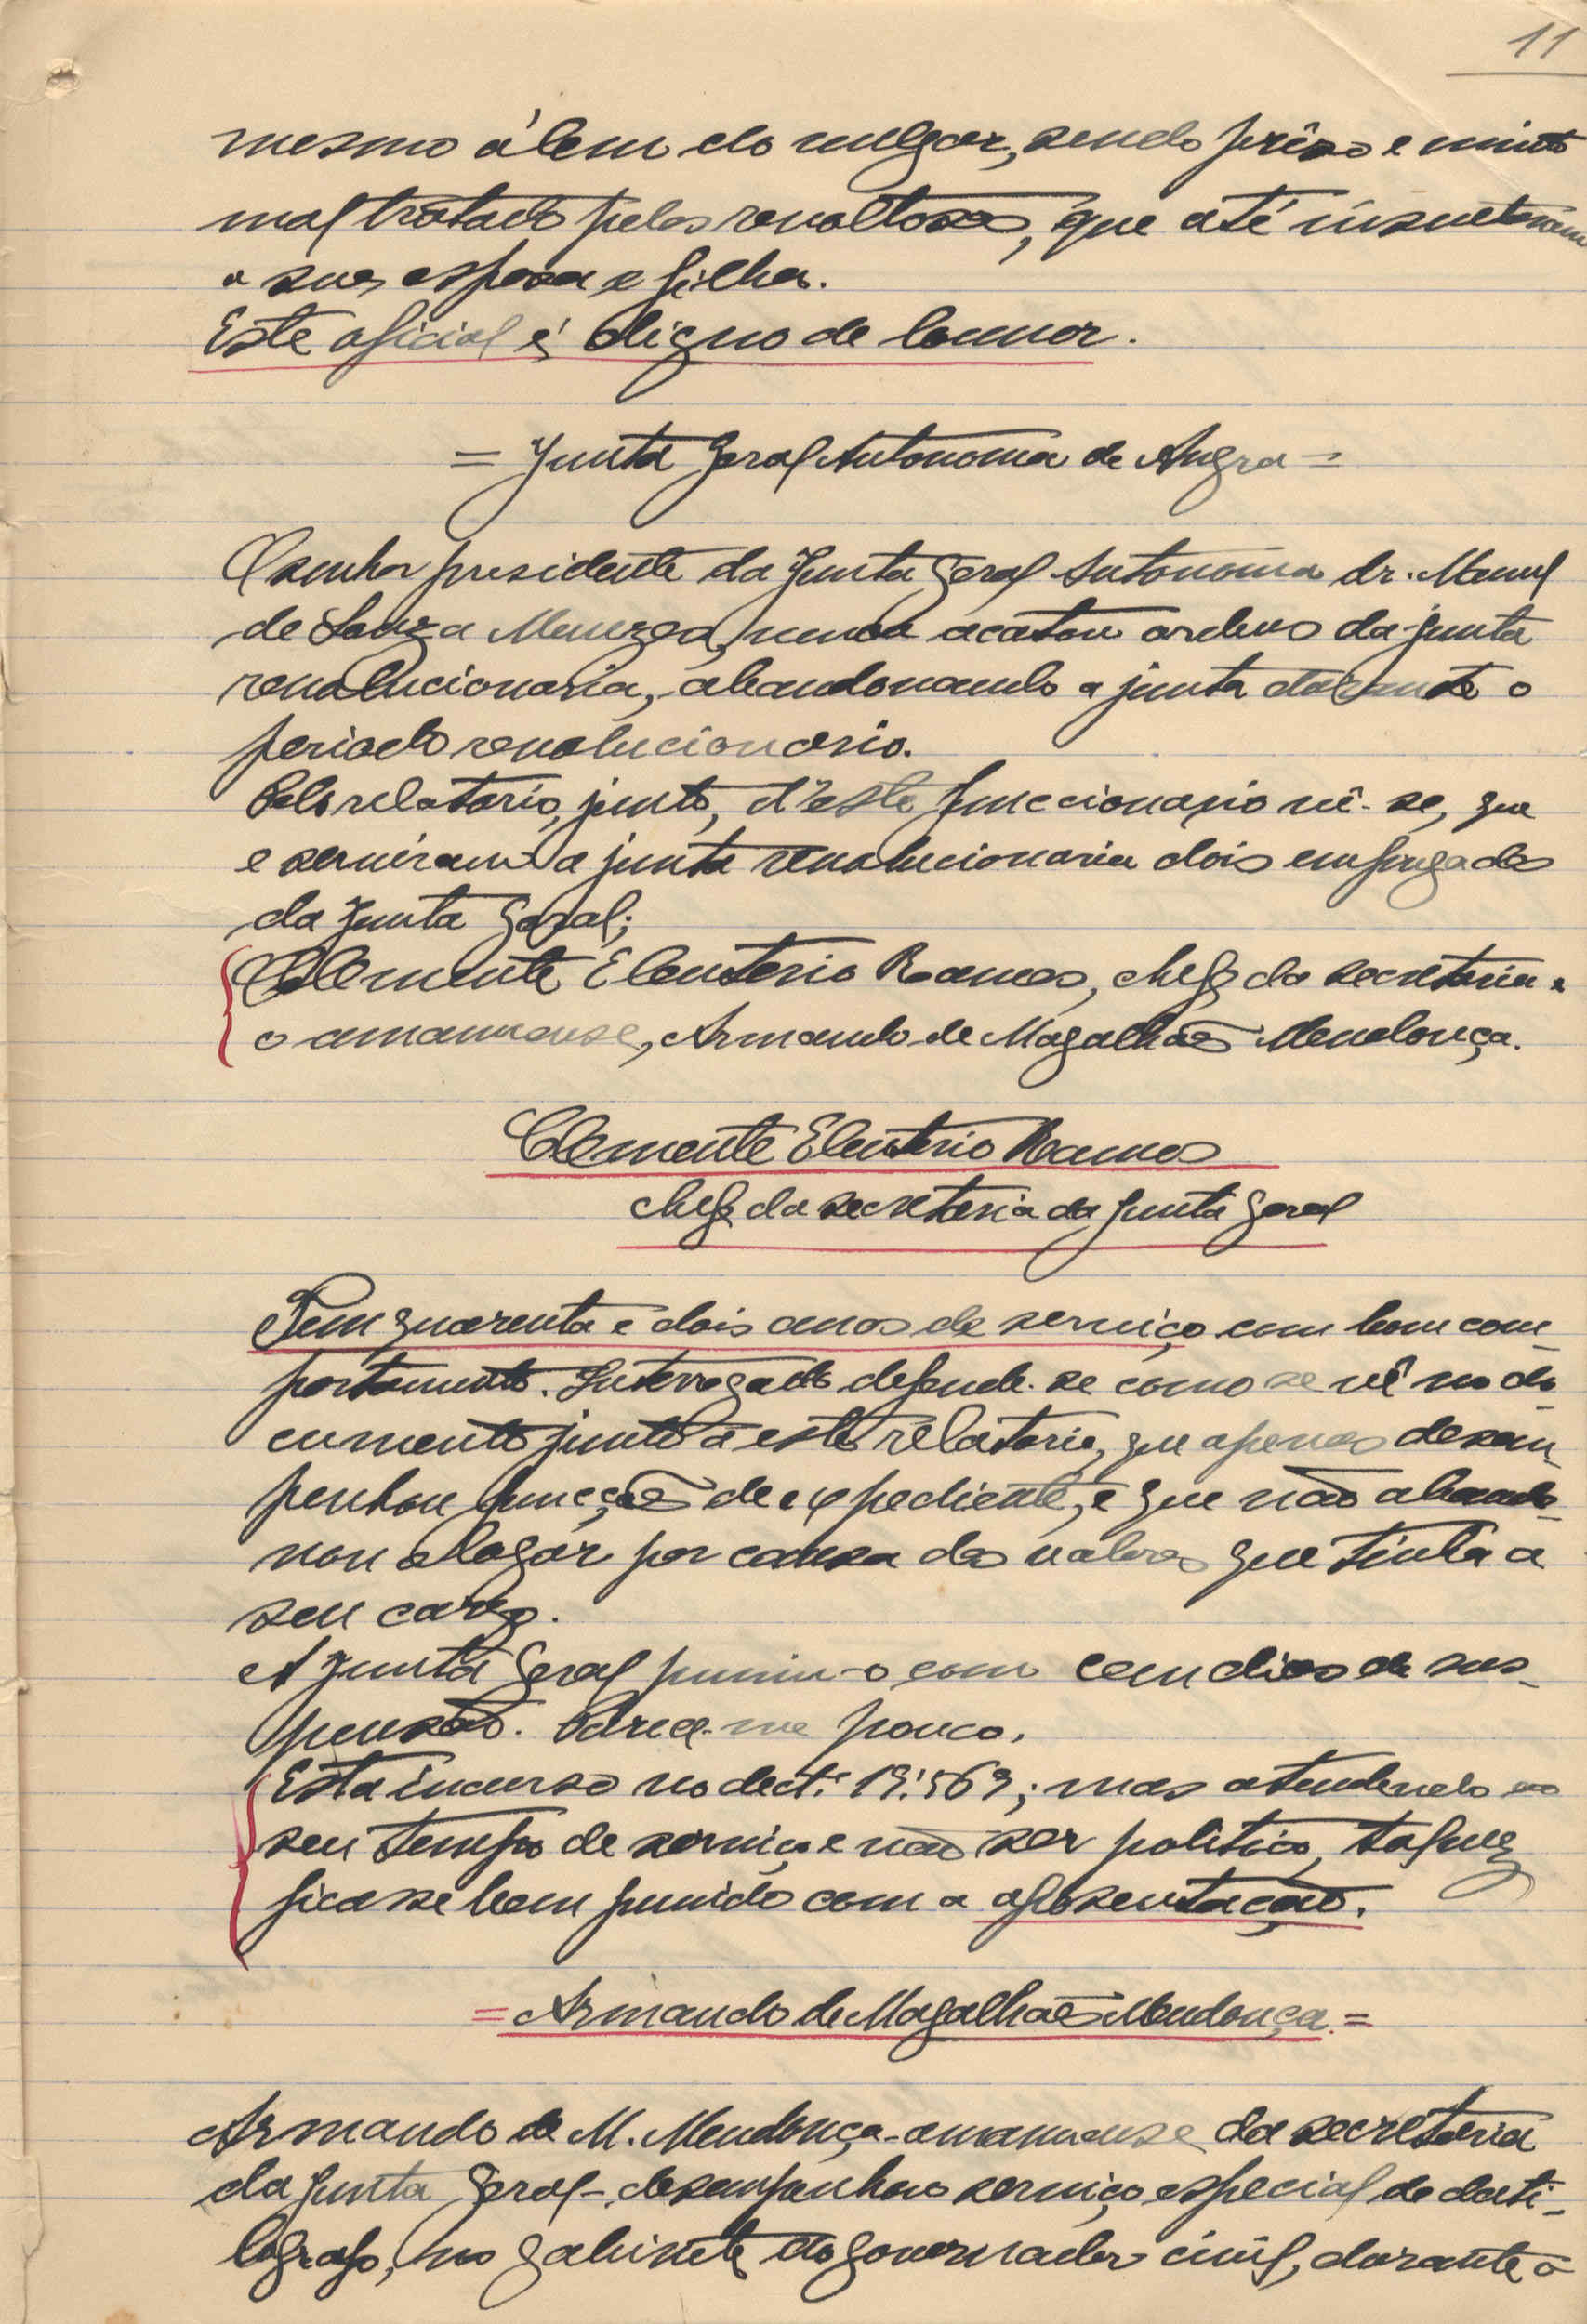 11
mesmo álem do vulgar, sendo prêso e muito
maltratado pelos revoltosos, que até insultaram
a sua esposa e filha.
Este oficial é digno de louvor.
= Junta Geral Autonoma de Angra =
O senhor presidente da Junta Geral Autonoma dr. Manuel
de Souza Menezes, nunca acatou ordens da junta
revolucionaria, abandonando a junta durante o
periodo revolucionario.
Pelo relatorio, junto, d'este funccionario vê-se, que
e serviram a junta revolucionaria dois empregados
da Junta Geral;
Clemente Eleuterio Ramos, chefe da secretaria e
o amanuense, Armando de Magalhães Mendonça.
Clemente Eleuterio Ramos
chefe da secretaria da Junta Geral
Tem quarenta e dois anos de serviço com bom com-
portamento. Interrogado defende-se como se vê no do-
cumento junto a este relatorio, que apenas desem-
penhou funcções de expediente, e que não abando-
nou o logar por causa dos valores que tinha a
seu cargo.
A Junta Geral puniu-o com cem dias de sus-
pensão. Parece-me pouco.
Está incurso no dect.º 19:569; mas atendendo ao
seu tempo de serviço e não ser politico, talvez
ficasse bem punido com a aposentação.
= Armando de Magalhães Mendonça. =
Armando de M. Mendonça - amanuense da secretaria
da Junta Geral - desempenhou serviço especial de dacti-
lografo, no gabinete do governador civil, durante o